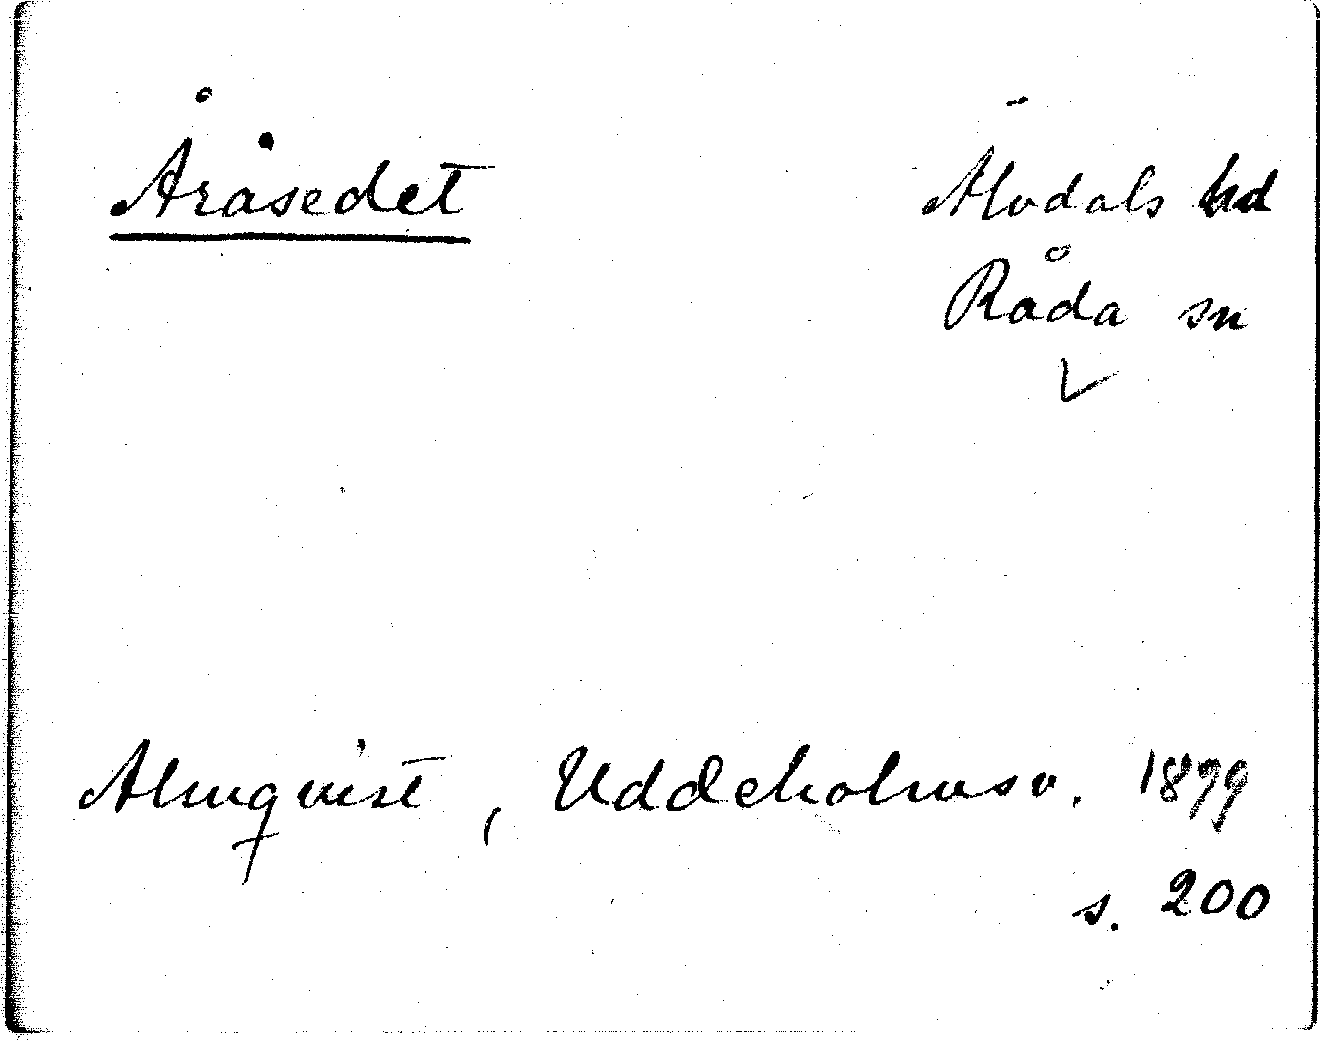 Åråsedet
Älvdals hd
Råda sn
Almqvist, Uddeholmsv. 1899
s. 200